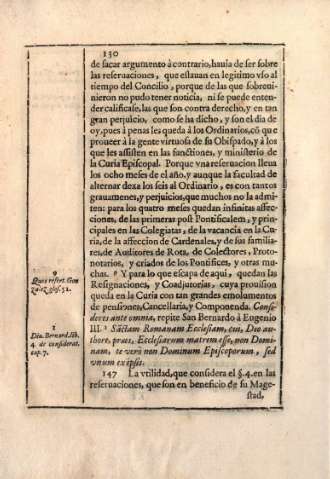 130
de sacar argumento à contrario, hauia de ser sobre
las reseruaciones, que estauan en legitimo vso al
tiempo del Concilio, porque de las que sobreui-
nieron no pudo tener noticia, ni se puede enten-
der calificase, las que son contra derecho, y en tan
gran perjuicio, como se ha dicho, y son el dia de
oy, pues à penas les queda à los Ordinarios, cō que
proueer à la gente virtuosa de su Obispado, y à los
que les assisten en las functiones, y ministerio de
la Curia Episcopal. Porque vna reseruacion lleua
los ocho meses de el año, y aunque la facultad de
alternar dexa los seis al Ordinario, es con tantos
grauamenes, y perjuicios, que muchos no la admi-
ten: para los quatro meses quedan infinitas affec-
ciones, de las primeras post Pontificalem, y prin-
cipales en las Colegiatas, de la vacancia en la Cu-
ria, de la affeccion de Cardenales, y de sus familia-
res, de Auditores de Rota, de Colectores, Proto-
notarios, y criados de los Pontifices, y otras mu-
chas. 9 Y para lo que escapa de aqui, quedan las
Resignaciones, y Coadjutorias, cuya prouision
queda en la Curia con tan grandes emolumentos
de pensiones, Cancellaria, y Componenda. Consi-
deres ante omnia, repite San Bernardo à Eugenio
III. 1 Sāctam Romanam Ecclesiam, cui, Deo au-
thore, præes, Ecclesiarum matrem esse, non Domi-
nam, te verò non Dominum Episcoporum, sed
vnum ex ipsis.
147 La vtilidad, que considera el §. 4. en las
reseruaciones, que son en beneficio de su Mage-
stad,
9
Quos refert. Gon
zalez glos. 52.
1
Diu. Bernard. lib.
4. de considerat.
cap. 7.